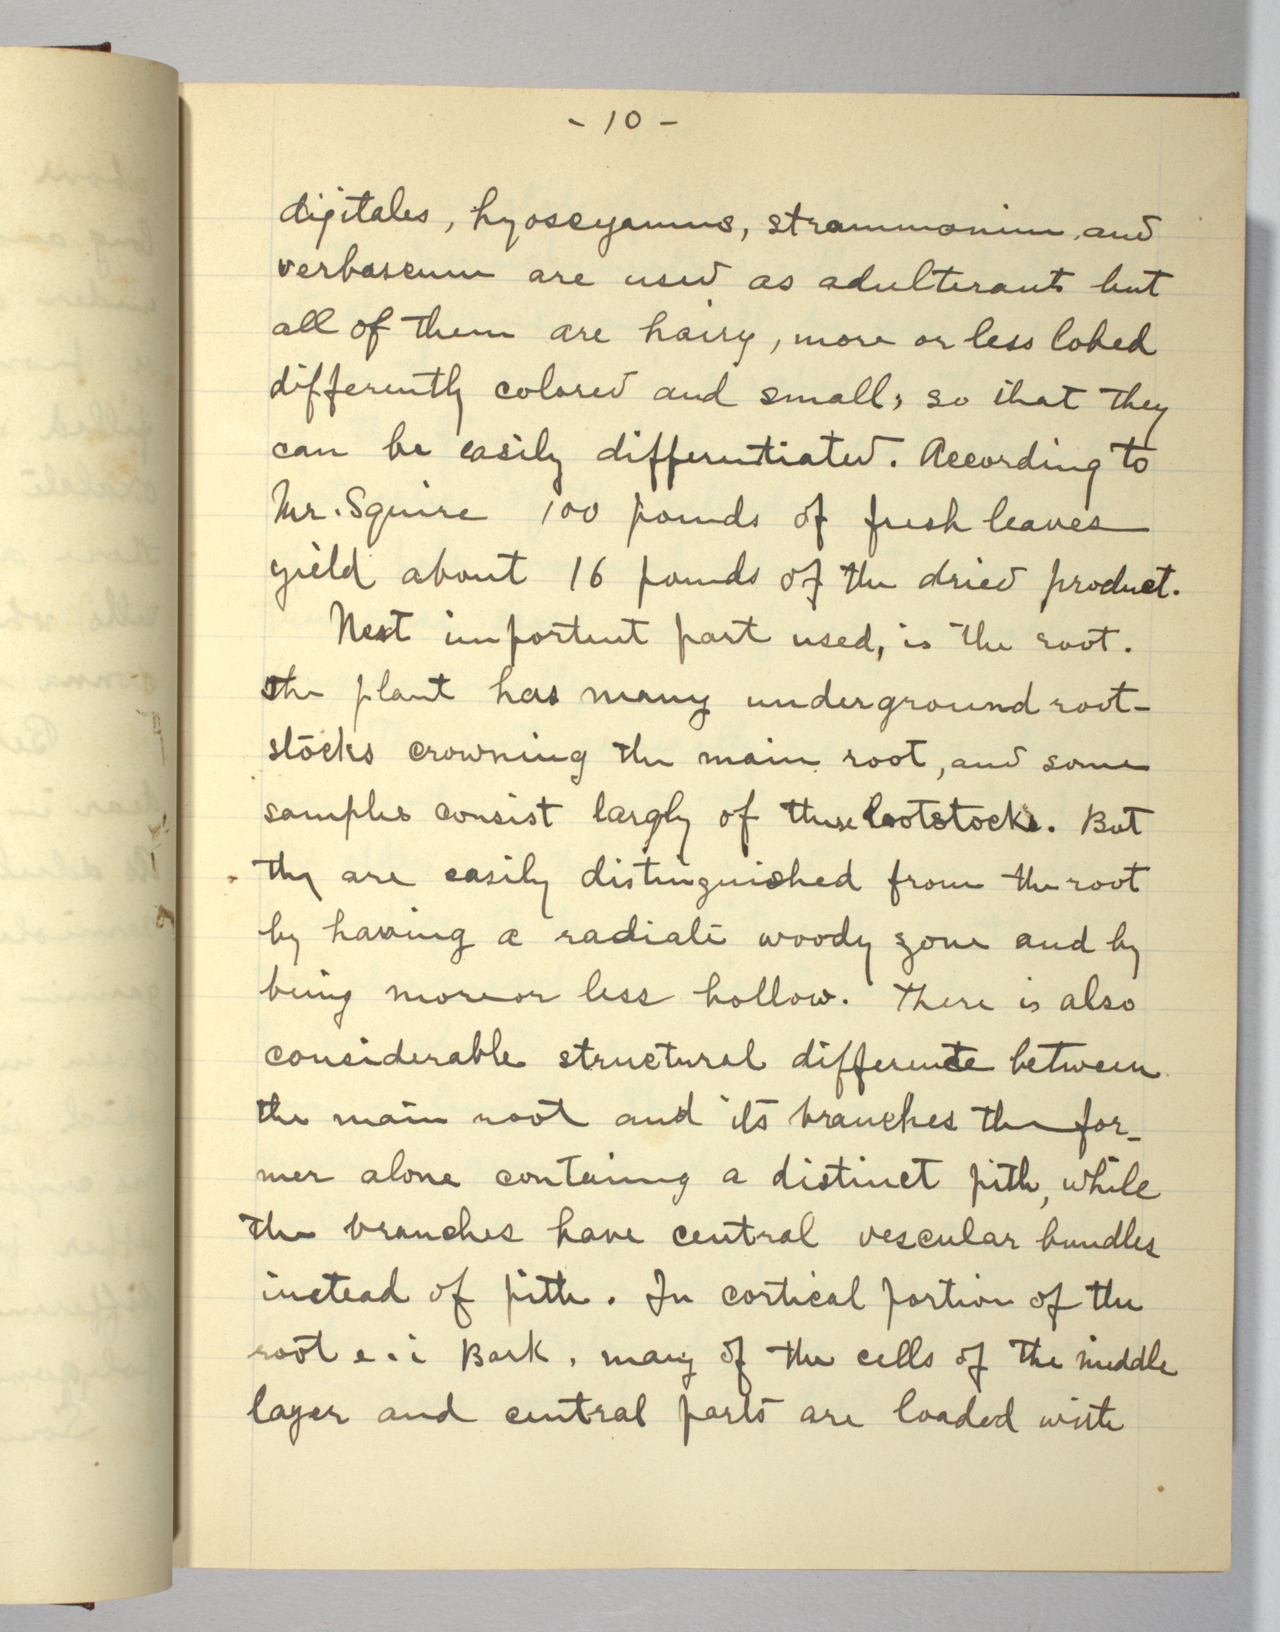 - 10 -
digitales, hyoscyamus, strammonium, and
verbascum are used as adulterants but
all of them are hairy, more or less lobed
differently colored and small, so that they
can be easily differentiated. According to
Mr. Squire 100 pounds of fresh leaves
yield about 16 pounds of the dried product.
Next importent part used, is the root.
The plant has many underground root-
stocks crowning the main root, and some
samples consist largly of these rootstocks. But
they are easily distinguished from the root
by having a radiate woody zone and by
being more or less hollow. There is also
considerable structural difference between
the main root and its branches the for-
mer alone containg a distinct pith, while
the branches have central vescular bundles
instead of pith. In cortical portion of the
root e.i Bark, many of the cells of the middle
layer and central parts are loaded with